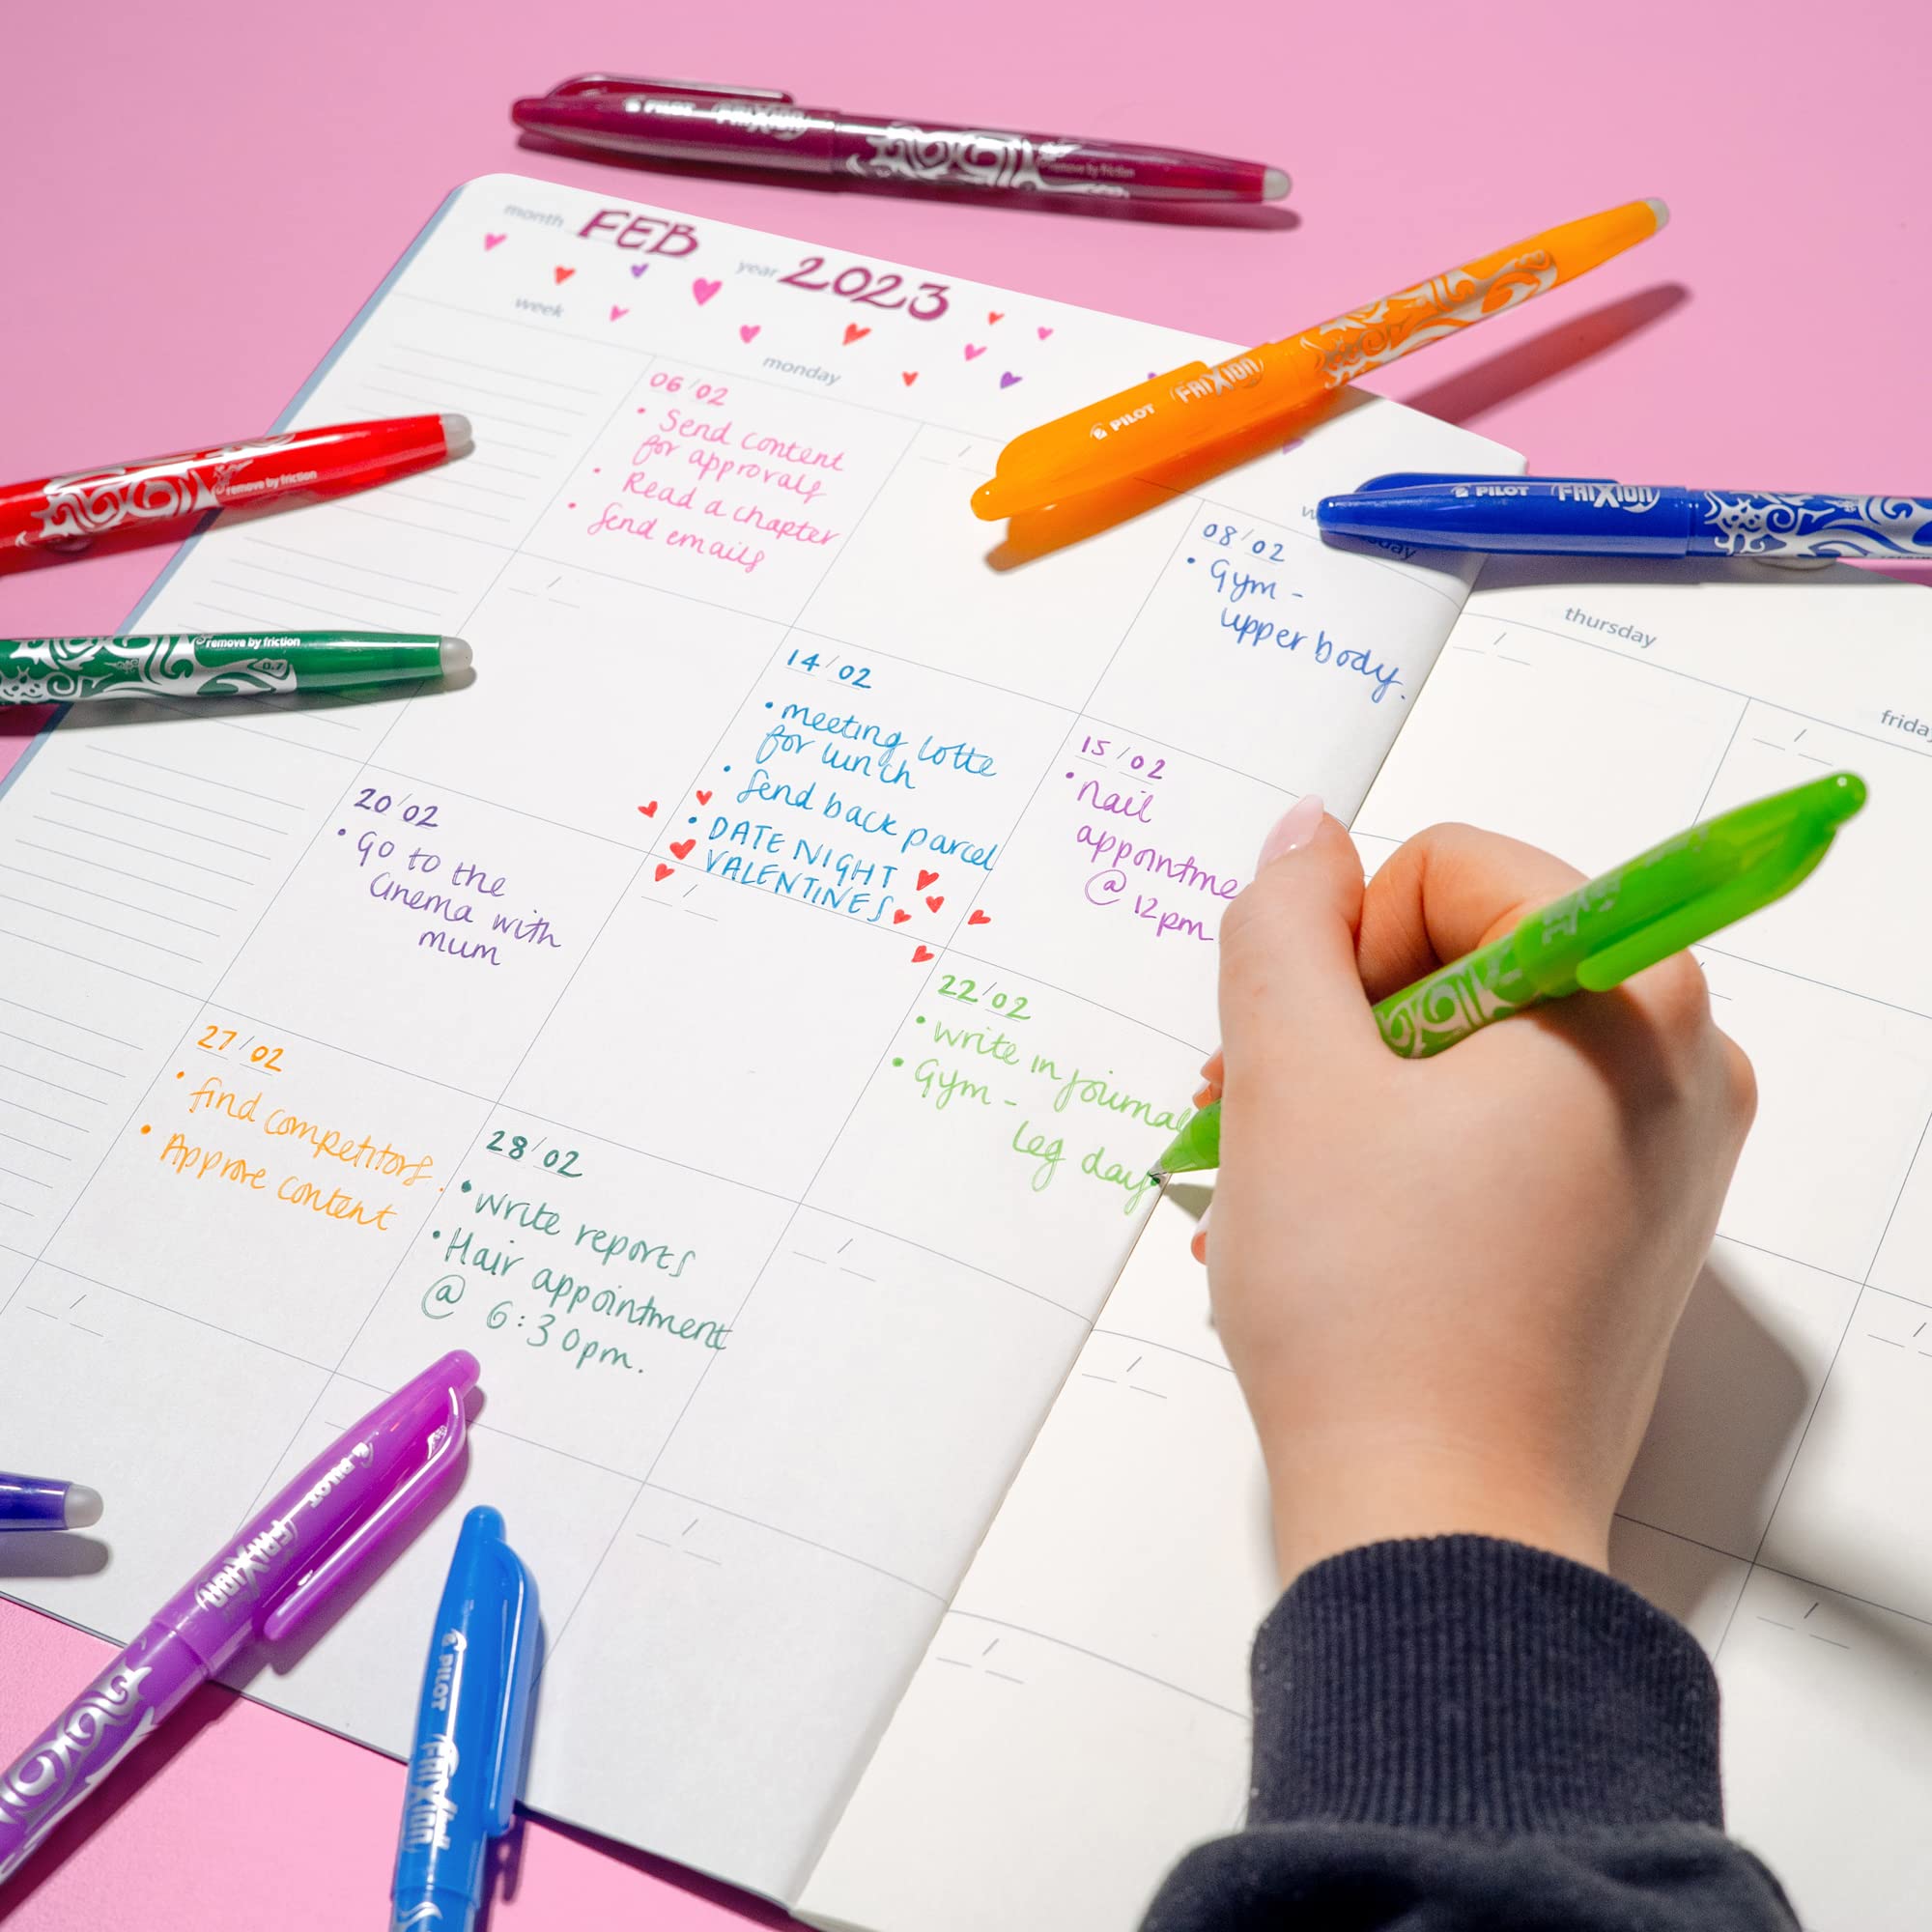 PILOT FRIXION
remove by friction
month FEB
year 2023
week
monday
PILOT FRIXION
PILOT FRIXION
thursday
friday
06/02
• Send content
for approvals
• Read a chapter
• Send emails
08/02
• Gym -
upper body.
remove by friction
remove by friction
0.7
14/02
• meeting lotte
for lunch
• Send back parcel
• DATE NIGHT
VALENTINES
15/02
• nail
@ 12pm
20/02
• go to the
cinema with
mum
22/02
• write in journal
• Gym -
leg day
27/02
• find competitors.
• Approve content
28/02
• write reports
• Hair appointment
@ 6:30pm.
PILOT FRIXION
PILOT FRIXION